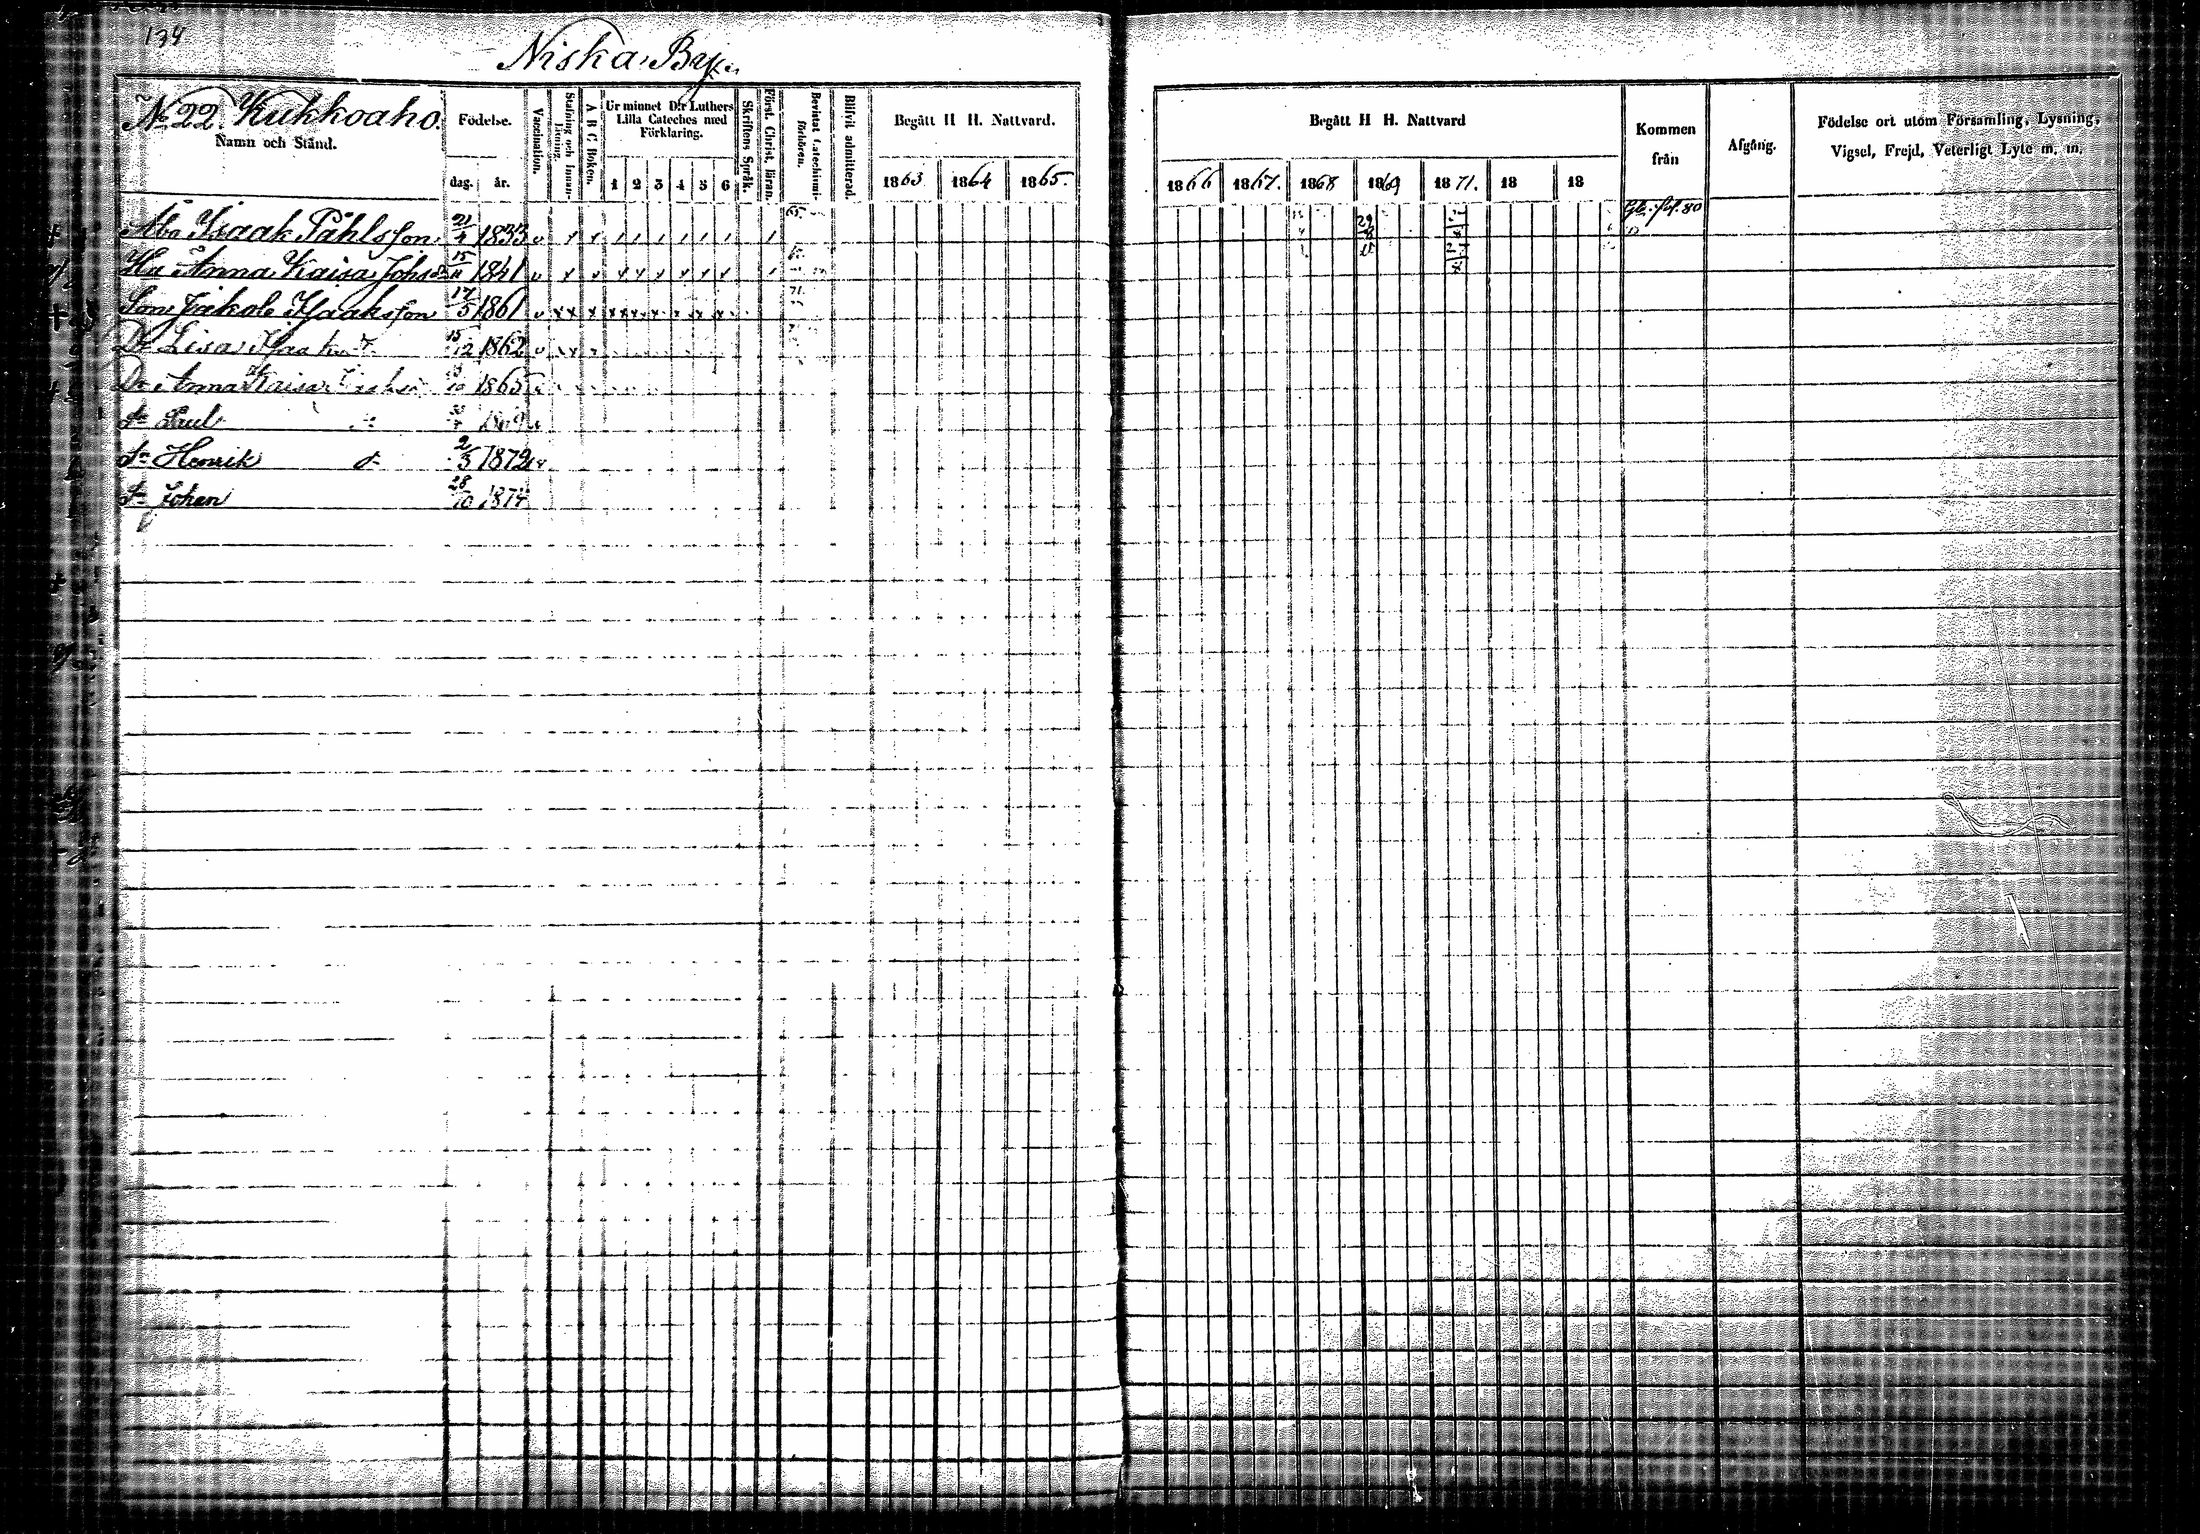 134
Niska By
No 22. Kukkoaho.
Namn och Stånd.
Födelse.
dag.
år.
Vaccination.
Stafning och Innan-
läsning.
A B C Boken.
Ur minnet D:r Luthers
Lilla Cateches med
Förklaring.
1 2 3 4 5 6
Skriftens Språk.
Först. Christ. läran.
Bevistat Catechismi-
förhören.
Blifvit admitterad.
Begått H H. Nattvard.
1863 1864 1865.
Begått H H. Nattvard
1866 1867. 1868 1869 1871. 18 18
Kommen
från
Afgång.
Födelse ort utom Församling, Lysning,
Vigsel, Frejd, Veterligt Lyte m. m.
Åbo Isaak Påhlsson 21/4 1833 v
fol. 80
Hu Anna Kaisa Johsdr 15/11 1841 v
Son Jakob Isaaksson 17/5 1861 v
Dr Lisa 15/12 1862 v
Dr Anna Kaisa 1865
Sn Paul 1869
Sn Henrik d:o 2/3 1872
Sn Johan 28/10 1874